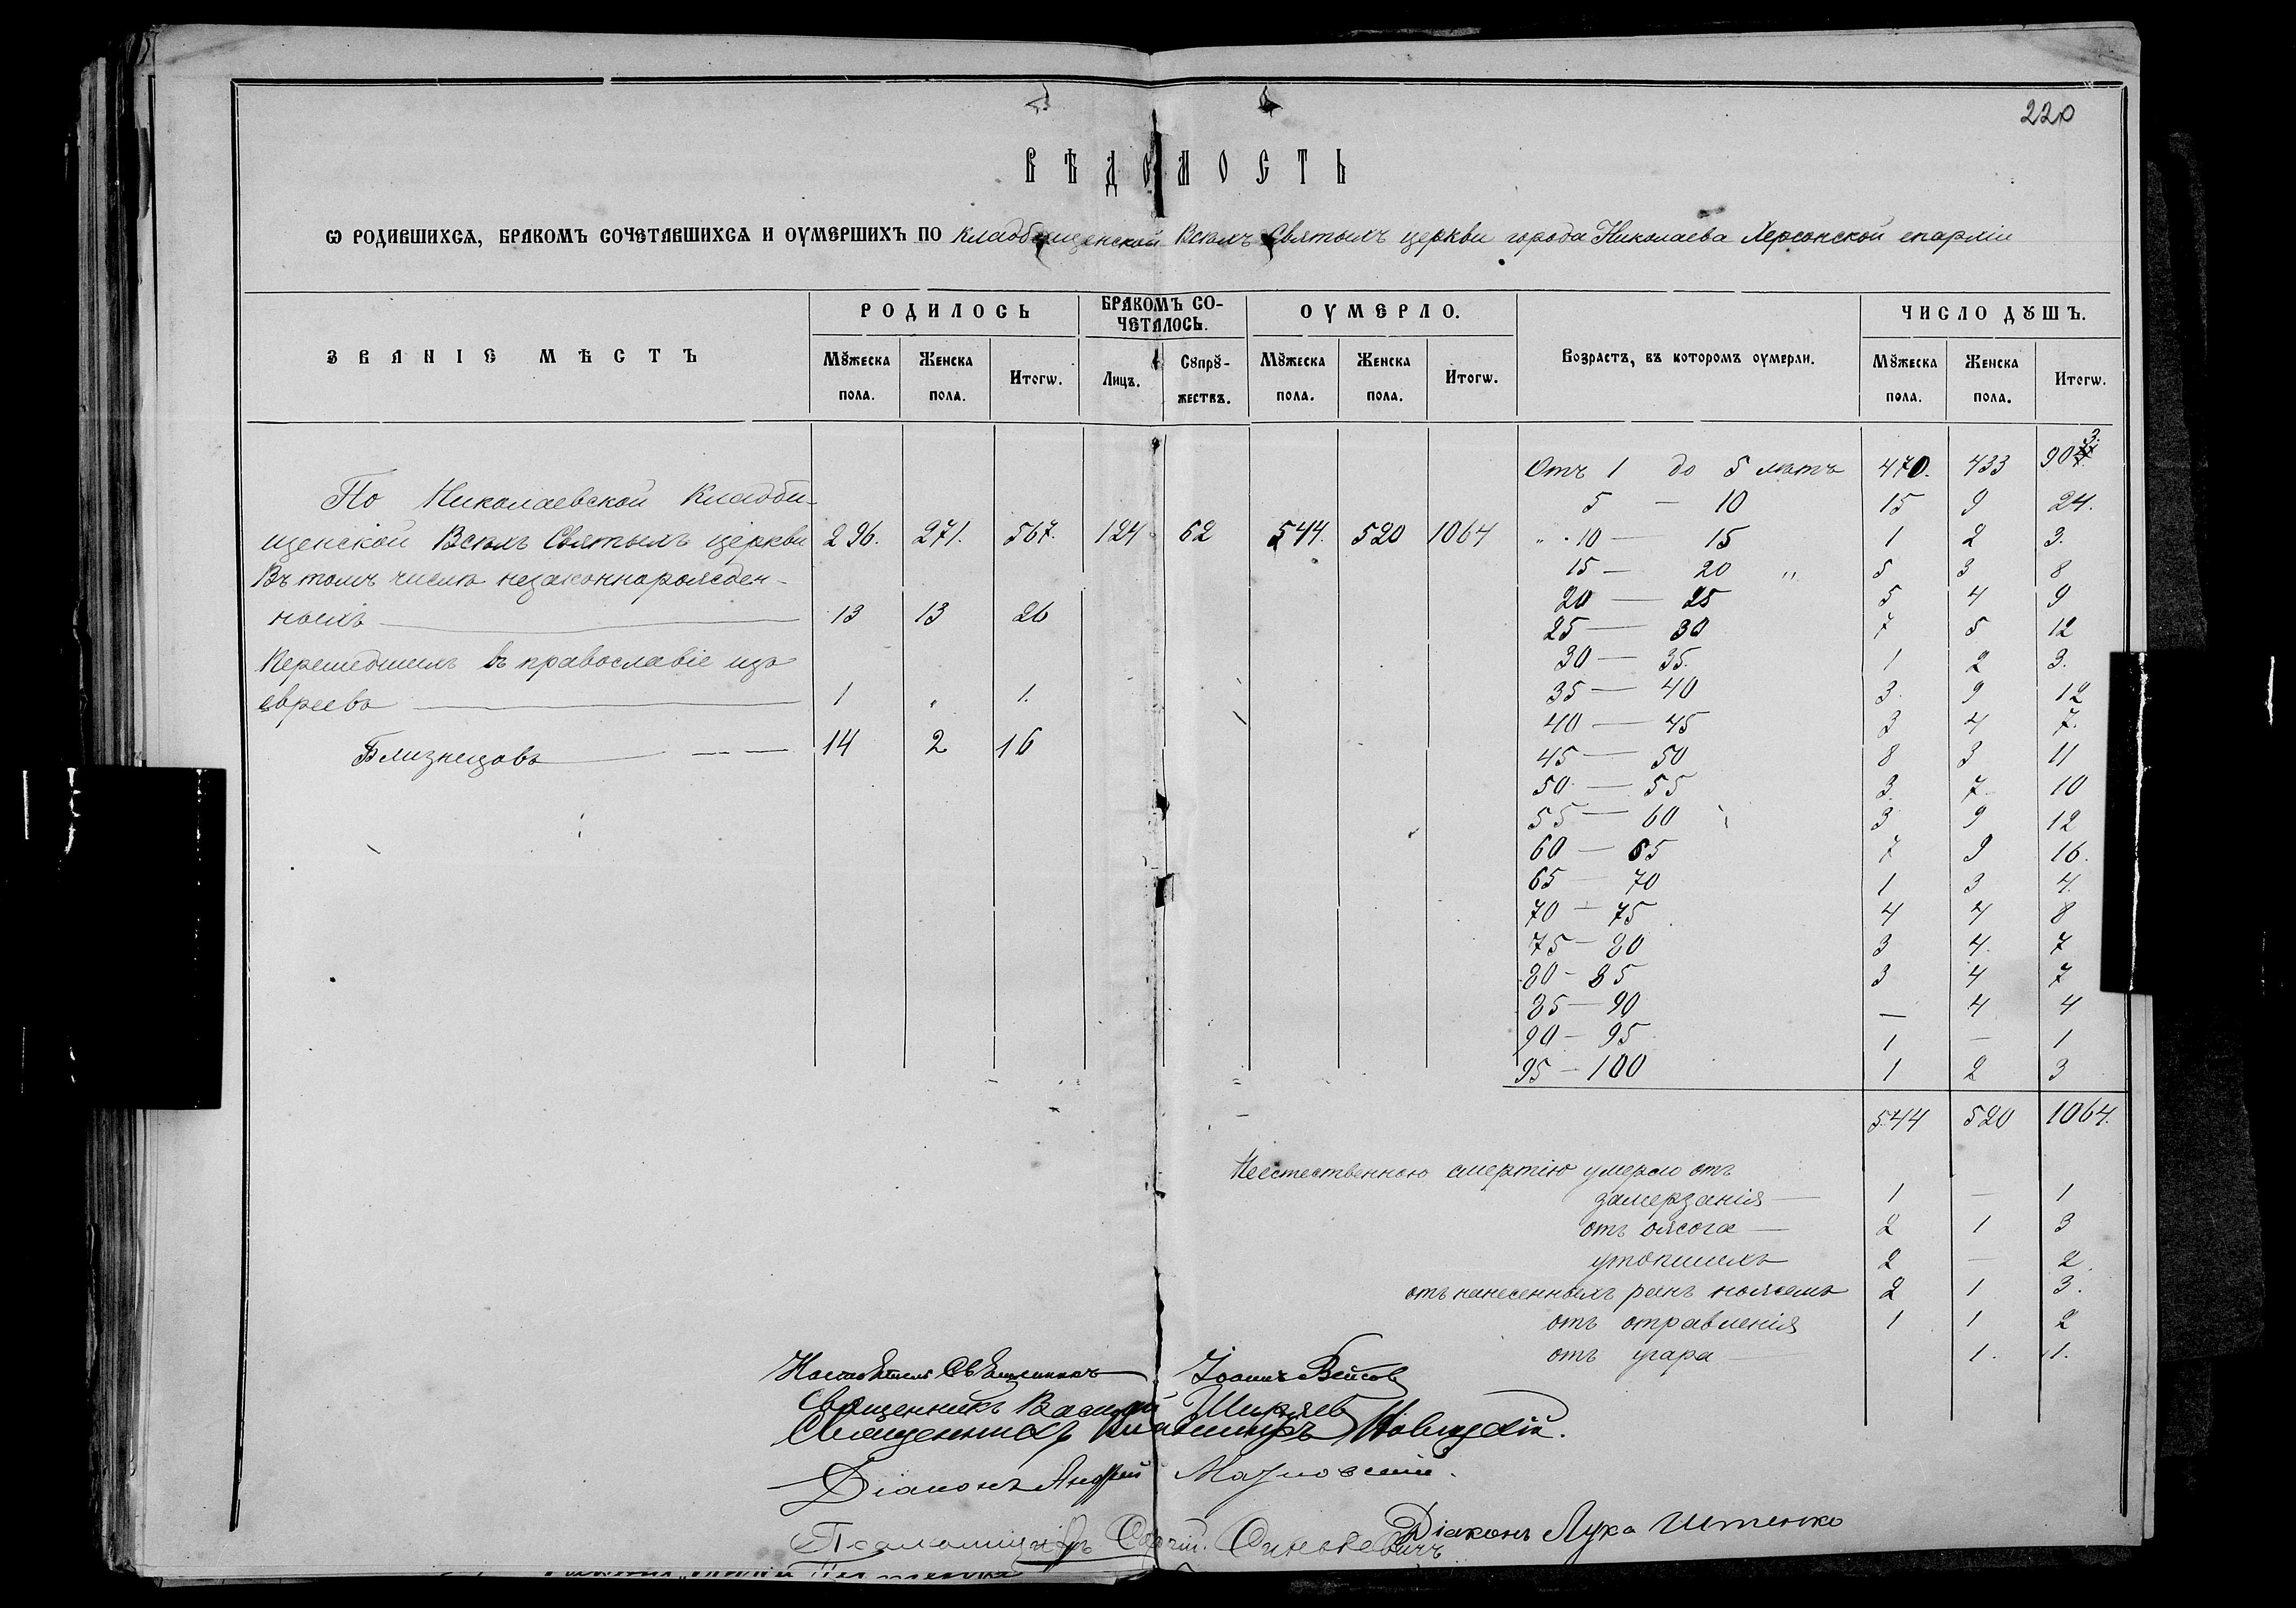 220
ВѢДОМОСТЬ
Ѡ РОДИВШИХСѦ, БРАКОМЪ СОЧЕТАВШИХСѦ И ОУМЕРШИХЪ ПО Кладбищенской Всѣхъ Святыхъ церкви города Николаева Херсонской епархіи
ЗВАНІЕ МѢСТЪ
РОДИЛОСЬ
БРАКОМЪ СО-
ЧЕТАЛОСЬ.
ОУМЕРЛО.
Возрастъ, въ которомъ оумерли.
ЧИСЛО ДꙊШЪ.
Мꙋжеска пола. Женска пола. Итогѡ. Лицъ. Сꙋпрꙋ-жествъ. Мꙋжеска пола. Женска пола. Итогѡ. Мꙋжеска пола. Женска пола. Итогѡ.
По Николаевской Кладби-
щенской Всѣхъ Святыхъ церкви 296. 271. 567. 124 62 544. 520 1064
Въ томъ числѣ незаконнорожден-
ныхъ 13 13 26
Перешедшихъ въ православіе изъ
евреевъ 1 „ 1.
Близнецовъ 14 2 16
Отъ 1 до 5 лѣтъ 470. 433 903.
5 — 10 15 9 24.
„ 10 — 15 1 2 3.
15 — 20 „ 5 3 8
20 — 25 5 4 9
25 — 30 7 5 12
30 — 35. 1 2 3.
35 — 40 3. 9 12
40 — 45 3 4 7.
45 — 50 8 3 11
50 — 55 3. 7 10
55 — 60 3 9 12
60 — 65 7 9 16.
65 — 70 1 3 4.
70 — 75 4 4 8
75 — 80 3 4. 7
80 — 85 3 4 7
85 — 90 — 4 4
90 — 95 1 — 1
95 — 100 1 2 3
544 520 1064.
Неестественною смертію умерло отъ
замерзанія — 1 — 1
отъ ожога — 2 1 3
утопшихъ 2 — 2.
отъ нанесенныхъ ранъ ножемъ 2 1 3.
отъ отравленія 1 1 2
отъ угара — 1. 1.
Настоятель Священникъ Іоаннъ
Священникъ Василій
Священникъ Владимиръ
Діаконъ Андрей
Діаконъ Лука Штенко
Псаломщикъ Сергій Синькевичъ